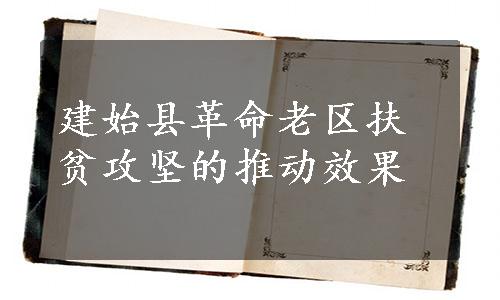 建始县革命老区扶
贫攻坚的推动效果